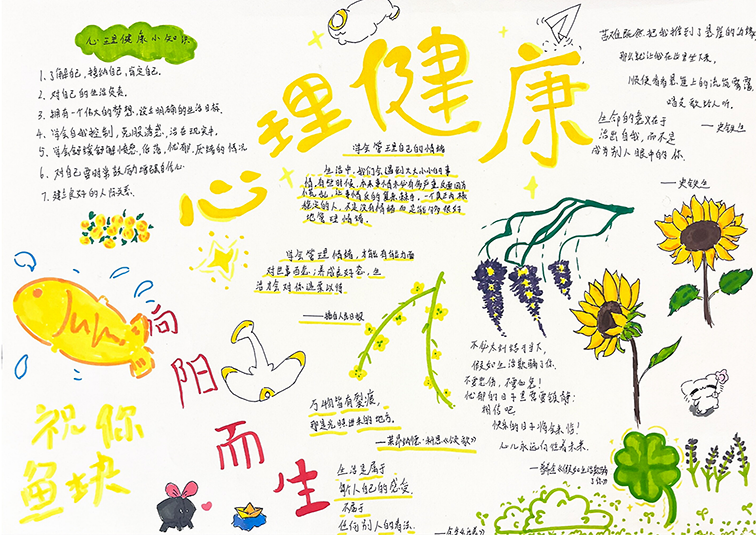 心理健康
心理健康小知识
1、了解自己，接纳自己，肯定自己。
2、对自己的生活负责。
3、拥有一个伟大的梦想，设立明确的生活目标。
4、学会自我控制，克服消惫，活在现实中。
5、学会舒缓舒解愤怒、低落、忧郁、厌烦的情况
6、对自己要时常鼓励增强自信心
7、建立良好的人际关系
学会管理自己的情绪
生活中，我们会遇到大大小小的事
情，有些时候，
稳定的人，不是没有情绪而是能够很好
地管理情绪。
学会管理情绪，才能有能力面
活才会对你温柔以待
——摘自人民日报
苦难既然把我推到了悬崖的边缘
那么就让我在这里坐下来，
顺便看看悬崖上的流岚雾霭，
唱支歌给人听。
——史铁生
生命的意义在于
活出自我，而不是
成为别人眼中的你。
——史铁生
Jump
向
阳
而
生
祝你
鱼块
万物皆有裂痕，
那是光照进来的地方。
——莱昂纳德·科恩《颂歌》
生活是属于
每个人自己的感受
不属于
任何别人的看法。
假如生活欺骗了你，
不要悲伤，不要心急！
忧郁的日子里需要镇静：
相信吧
快乐的日子将会来临！
心儿永远向往着未来。